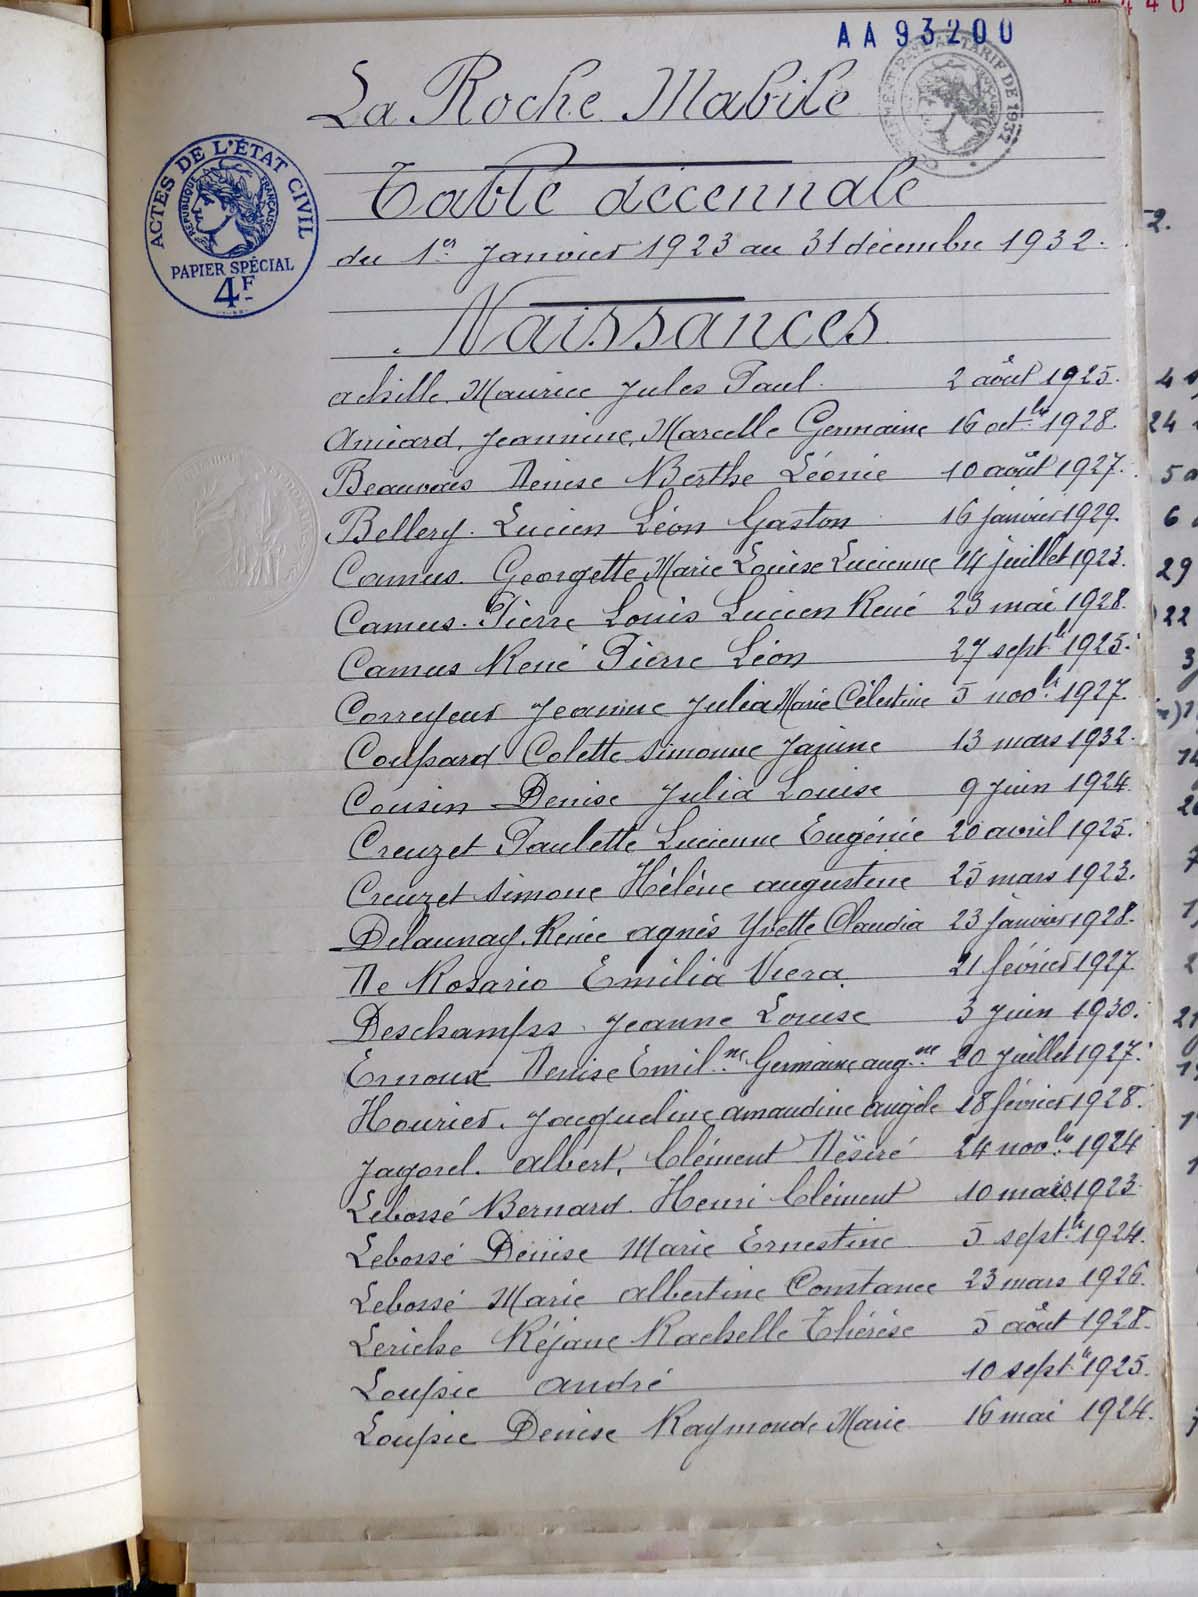 AA93200
La Roche Mabile
ACTES DE L'ÉTAT CIVIL
RÉPUBLIQUE FRANÇAISE
PAPIER SPÉCIAL
4F
TARIF DE 1937
Table décennale
du 1er Janvier 1923 au 31 décembre 1932.
Naissances
Achille Maurice Jules Paul 2 août 1925.
Amiard, Jeannine, Marcelle Germaine 16 octbre 1928.
Beauvais Denise Berthe Léonie 10 août 1927.
Bellery. Lucien Léon Gaston 16 janvier 1929.
Camus. Georgette Marie Louise Lucienne 14 juillet 1923.
Camus. Pierre Louis Lucien René 23 mai 1928.
Camus René Pierre Léon 27 septbre 1925.
Correyeur Jeanine Julia Marie Célestine 5 novbre 1927.
Coupard Colette Simonne Janine 13 mars 1932.
Cousin Denise Julia Louise 9 Juin 1924.
Creuzet Paulette Lucienne Eugénie 20 avril 1925.
Creuzet Simone Hélène Augustine 25 mars 1923.
Delaunay. Renée Agnès Yvette Claudia 23 janvier 1928.
De Rosario Emilia Viera 21 février 1927.
Deschamps Jeanne Louise 3 Juin 1930.
Ernoux Denise Emilne Germaine Augne 20 Juillet 1927.
Hourier. Jacqueline Amandine Angèle 18 février 1928.
Jagorel. Albert, Clément Désiré 24 novbre 1924
Lebossé Bernard Henri Clément 10 mars 1923
Lebossé Denise Marie Ernestine 5 septbre 1924.
Lebossé Marie Albertine Constance 23 mars 1926.
Leriche Réjane Rachelle Thérèse 5 août 1928.
Loupie André 10 septbre 1925.
Loupie Denise Raymonde Marie 16 mai 1924.